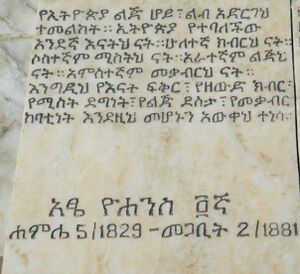 የኢትዮጵያ ልጅ ሆይ፤ልብ አድርገህ
ተመልከት። ኢትዮጵያ የተባለችው
አንደኛ እናትህ ናት።ሁለተኛ ክብርህ ናት።
ሶስተኛም ሚስትህ ናት።አራተኛም ልጅህ
ናት።አምስተኛም መቃብርህ ናት።
እንግዲህ የእናት ፍቅር፤የዘውድ ክብር፤
የሚስት ደግነት፤የልጅ ደስታ፤የመቃብር
ከባቲነት እንደዚህ መሆኑን አውቀህ ተነሳ።
አፄ ዮሐንስ ፬ኛ
ሐምሌ 5/1829 - መጋቢት 2/1881